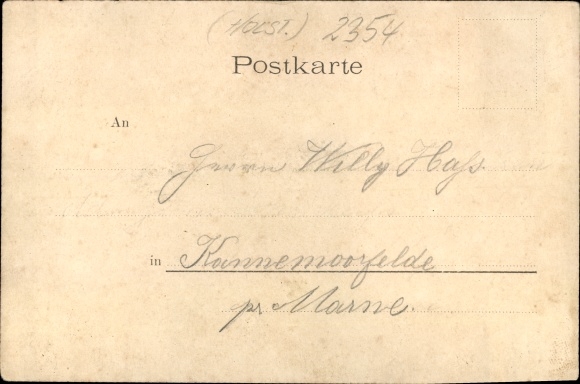 (Holst.) 2354
Postkarte
An
Herrn Willy Haß
in Kannemoorfelde
pr Marne.